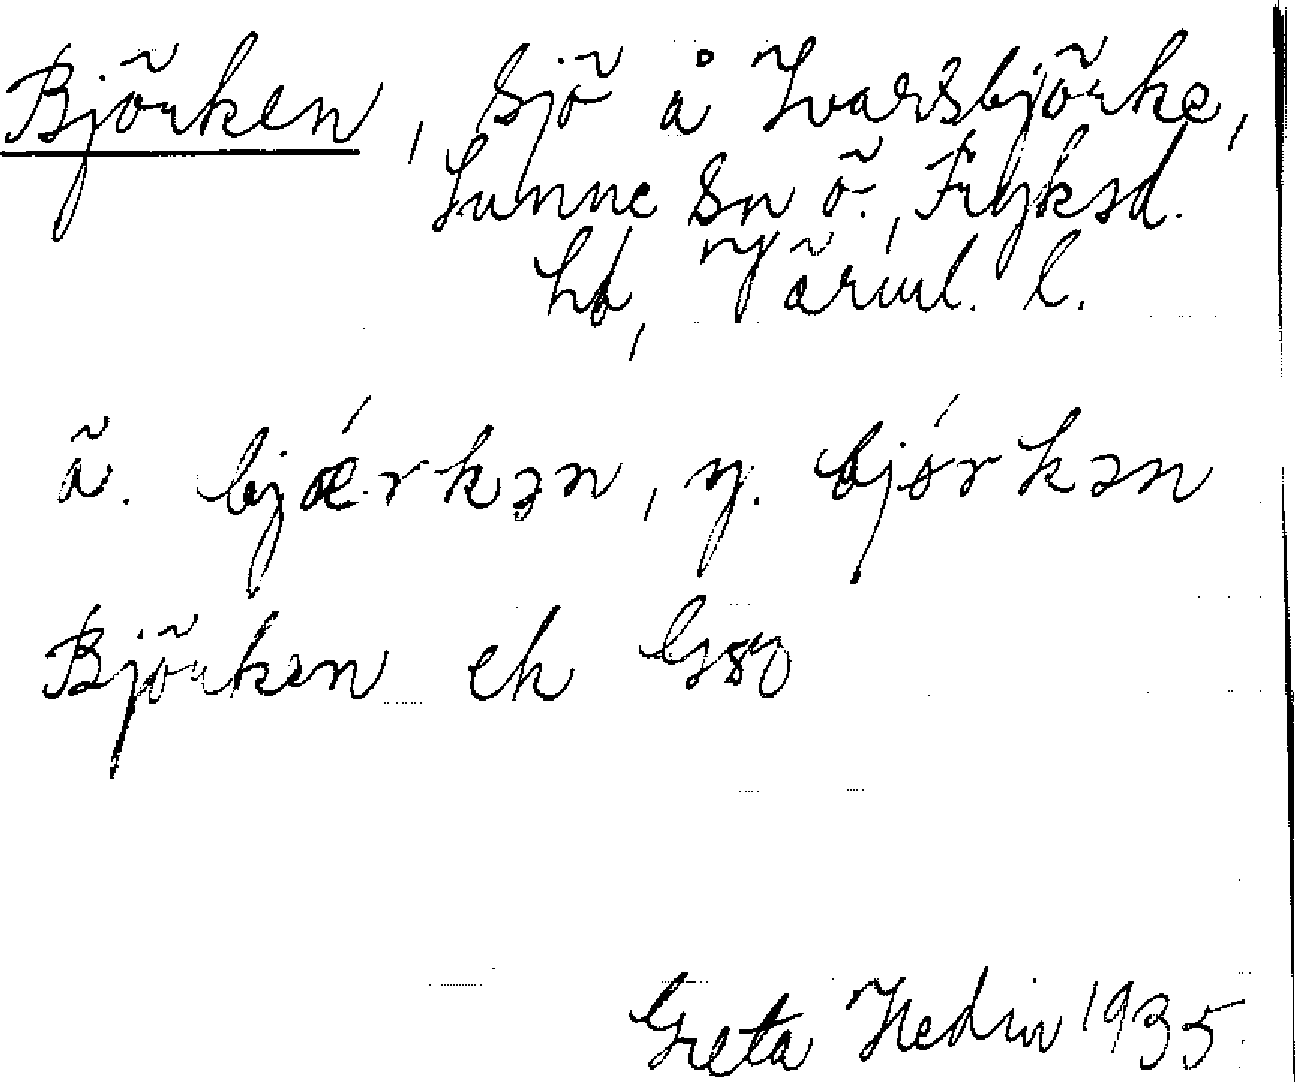 Björken, sjö å Ivarsbjörke,
Sunne sn ö., Fryksd.
hd, Värml. l.
ä. bjǽrkən, y. bjǿrkən
Björken ek Gsz
Greta Hedin 1935